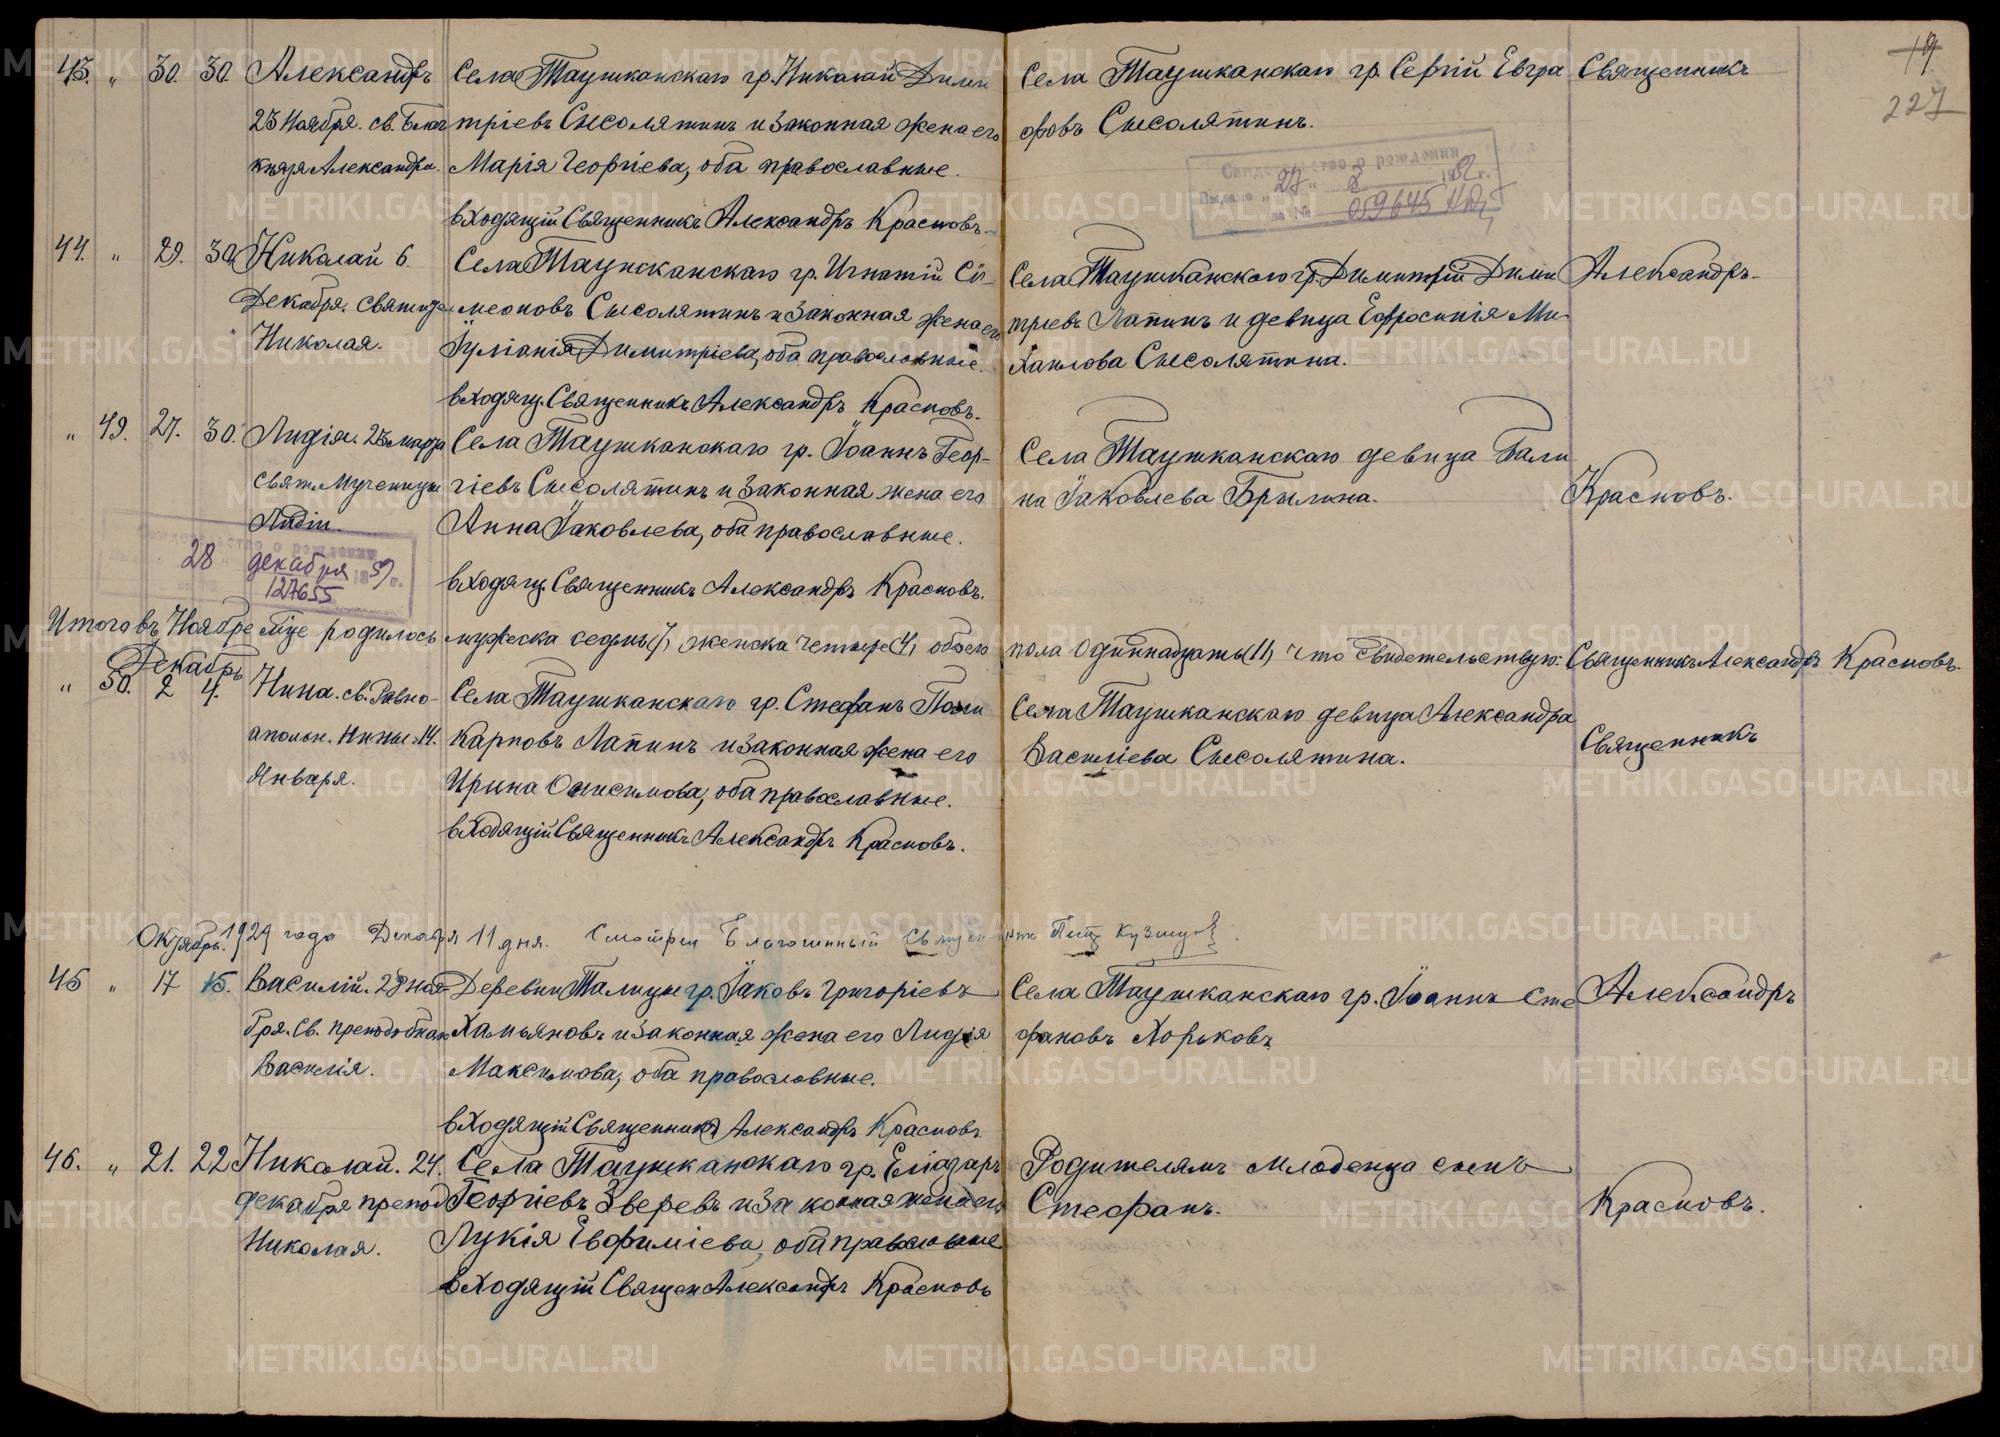 43. " 30. 30. Александръ Села Таушканскаго гр. Николай Дими Села Таушканскаго гр. Сергій Евгра Священникъ
19
227
23 Ноября. св. Благ тріевъ Сысолятинъ и законная жена его фовъ Сысолятинъ.
князя Александра. Марія Георгіева, оба православные.
27 1 059645
входящій Священникъ Александръ Красновъ.
44. " 29. 30. Николай 6. Села Таушканскаго гр. Игнатій Сі- Села Таушканскаго гр. Димитрій Дими Александръ
Декабря. Святител меоновъ Сысолятинъ и законная жена его тріевъ Лапинъ и девица Евфросинія Ми
Николая. Іуліанія Димитріева, оба православные. хаилова Сысолятина.
входящ. Священникъ Александръ Красновъ.
" 49. 27. 30. Лидія. 23 марта Села Таушканскаго гр. Іоаннъ Геор- Села Таушканскаго девица Гали
Свят. Мученицы гіевъ Сысолятинъ и законная жена его на Іаковлева Брылина. Красновъ.
Лидіи. Анна Іаковлева, оба православные.
28 декабря 59 г.
127655
входящ. Священникъ Александръ Красновъ.
Итого въ Ноябре м-це родилось мужеска седмь (7), женска четыре (4), обоего пола одиннадцать (11) что свидетельствую: Священникъ Александръ Красновъ.
Декабрь
" 50. 2 4. Нина. св. Равно- Села Таушканскаго гр. Стефанъ Поли Села Таушканскаго девица Александра
апольн. Нины. 14. карповъ Лапинъ и законная жена его Василіева Сысолятина. Священникъ
Января. Ирина Онисимова, оба православные.
входящій Священникъ Александръ Красновъ.
1929 года Декабря 11 дня. Смотрел Благочинный Священник Петр Кузнецов.
Октябрь.
45 " 17 15. Василій. 28 ноя- Деревни Талицы гр. Іаковъ Григоріевъ Села Таушканскаго гр. Іоаннъ Сте Александръ
бря. Св. преподобнаго Хамьяновъ и законная жена его Лидія фановъ Хорьковъ
Василія. Максимова, оба православные.
входящій Священникъ Александръ Красновъ
46. " 21. 22 Николай. 24. Села Таушканскаго гр. Еліазаръ Родителямъ младенца сынъ
декабря препод Георгіевъ Зверевъ и законная жена его Стефанъ. Красновъ.
Николая. Лукія Евфиміева, оба православные
входящій Священ Александръ Красновъ